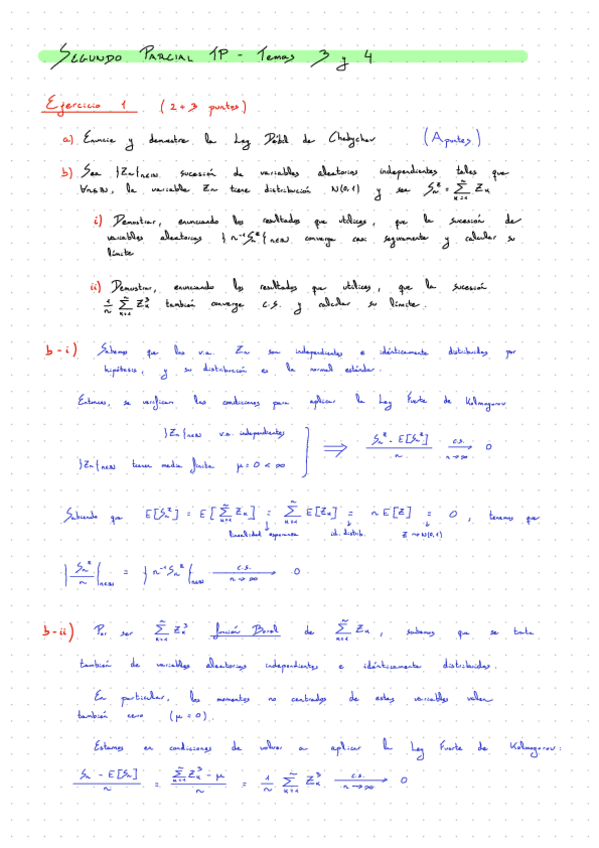 SEGUNDO PARCIAL TP - Temas 3 y 4
Ejercicio 1 (2+3 puntos)
a) Enuncie y demuestre la Ley Débil de Chebychev (Apuntes)
b) Sea {Zn}n∈N sucesión de variables aleatorias independientes tales que
∀n∈N, la variable Zn tiene distribución N(0,1) y sea Sn^Z = Σ_{k=1}^n Zk
i) Demostrar, enunciando los resultados que utilices, que la sucesión de
variables aleatorias {n^-1 Sn^Z}n∈N converge casi seguramente y calcular su
límite
ii) Demostrar, enunciando los resultados que utilices, que la sucesión
1/n Σ_{k=1}^n Zk^3 también converge c.s. y calcular su límite.
b-i) Sabemos que las v.a. Zn son independientes e idénticamente distribuidas por
hipótesis, y su distribución es la normal estándar.
Entonces, se verifican las condiciones para aplicar la Ley Fuerte de Kolmogorov
{Zn}n∈N v.a. independientes
{Zn}n∈N tienen media finita μ=0<∞ ⟹ (Sn^Z - E[Sn^Z])/n →(c.s., n→∞) 0
Sabiendo que E[Sn^Z] = E[Σ_{k=1}^n Zk] = Σ_{k=1}^n E[Zk] = n E[Z] = 0, tenemos que
linealidad esperanza id. distrib. Z ~ N(0,1)
{Sn^Z/n}n∈N = {n^-1 Sn^Z}n∈N →(c.s., n→∞) 0
b-ii) Por ser Σ_{k=1}^n Zk^3 función Borel de Σ_{k=1}^n Zk, sabemos que se trata
también de variables aleatorias independientes e idénticamente distribuidas.
En particular, los momentos no centrados de estas variables valen
también cero (μ=0).
Estamos en condiciones de volver a aplicar la Ley Fuerte de Kolmogorov:
(Sn - E[Sn])/n = (Σ_{k=1}^n Zk^3 - μ)/n = 1/n Σ_{k=1}^n Zk^3 →(c.s., n→∞) 0